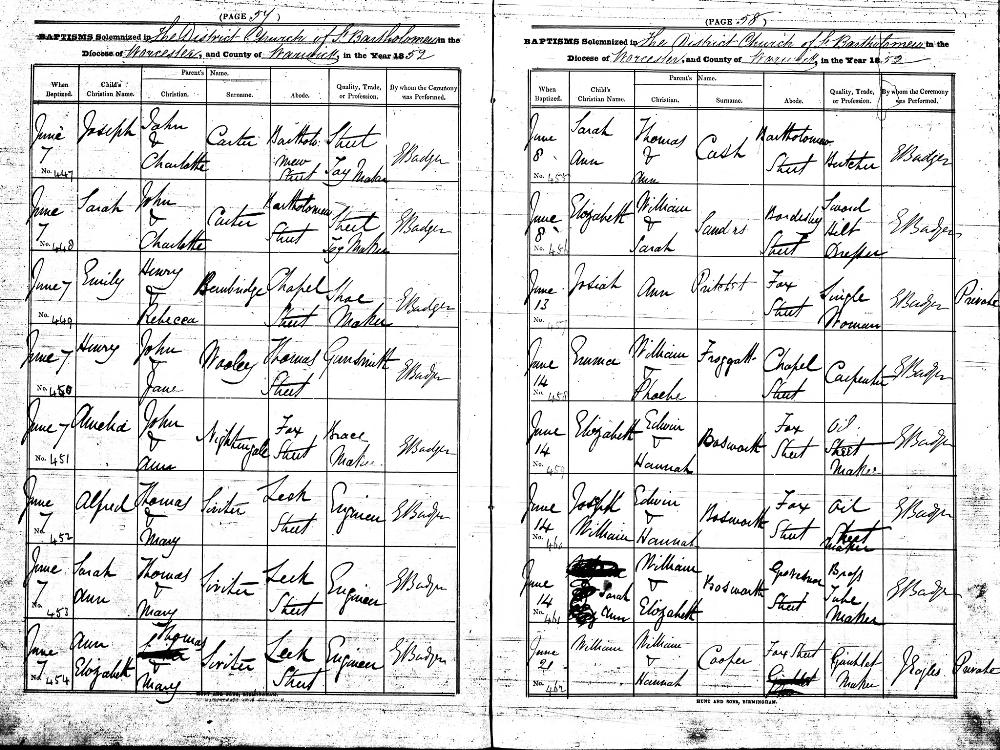 (PAGE 57)
BAPTISMS Solemnized in The District Church of St Bartholomew in the
Diocese of Worcester, and County of Warwick, in the Year 1852
When Baptized. Child's Christian Name. Parent's Name. Christian. Surname. Abode. Quality, Trade, or Profession. By whom the Ceremony was Performed.
June 7 No. 447 Joseph John & Charlotte Carter Bartholomew Street Toy Maker EBadger
June 7 No. 448 Sarah John & Charlotte Carter Bartholomew Street Toy Maker EBadger
June 7 No. 449 Emily Henry & Rebecca Bembridge Chapel Street Shoe Maker EBadger
June 7 No. 450 Henry John & Jane Wooley Thomas Street Gunsmith EBadger
June 7 No. 451 Amelia John & Ann Nightingale Fox Street Brace Maker EBadger
June 7 No. 452 Alfred Thomas & Mary Siviter Leek Street Engineer EBadger
June 7 No. 453 Sarah Ann Thomas & Mary Siviter Leek Street Engineer EBadger
June 7 No. 454 Ann Elizabeth Thomas & Mary Siviter Leek Street Engineer EBadger
HUNT AND SONS, BIRMINGHAM.
(PAGE 58)
BAPTISMS Solemnized in The District Church of St Bartholomew in the
Diocese of Worcester, and County of Warwick, in the Year 1852
When Baptized. Child's Christian Name. Parent's Name. Christian. Surname. Abode. Quality, Trade, or Profession. By whom the Ceremony was Performed.
June 8 No. 455 Sarah Ann Thomas & Ann Cash Bartholomew Street Butcher EBadger
June 8 No. 456 Elizabeth William & Sarah Sanders Bordesley Street Sword Hilt Dresser EBadger
June 13 No. Josiah Ann Fox Street Single Woman EBadger Private
June 14 No. 458 Emma William & Phoebe Froggatt Chapel Street Carpenter EBadger
June 14 No. 459 Elizabeth Edwin & Hannah Bosworth Fox Street Oil Maker EBadger
June 14 No. 460 Joseph William Edwin & Hannah Bosworth Fox Street Oil Maker EBadger
June 14 No. 461 Sarah Ann William & Elizabeth Bosworth Grosvenor Street Brass Tube Maker EBadger
June 21 No. 462 William William & Hannah Cooper Fox Street Gimblet Maker JEagles Private
HUNT AND SONS, BIRMINGHAM.